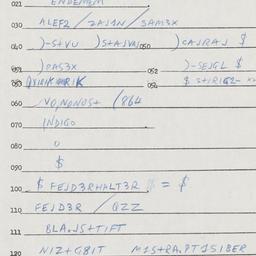 021 ENDEMEM
030 ALEF2 / ZAJ1N / SAM3X
040 )-S+VU )S+AJVAJ 050 )CAJRAJ $
051 )PAS3X 052 )-SEJGL $
053 054
060 VO,NONOS+ (864
070 INDIGO
080 0
090 $
100 $ FEJD3RHALT3R $ = $
110 FEJD3R / QZZ
111 BLA.JS+TIFT
120 NIZ+GBIT M1S+RA.PT1SIBER